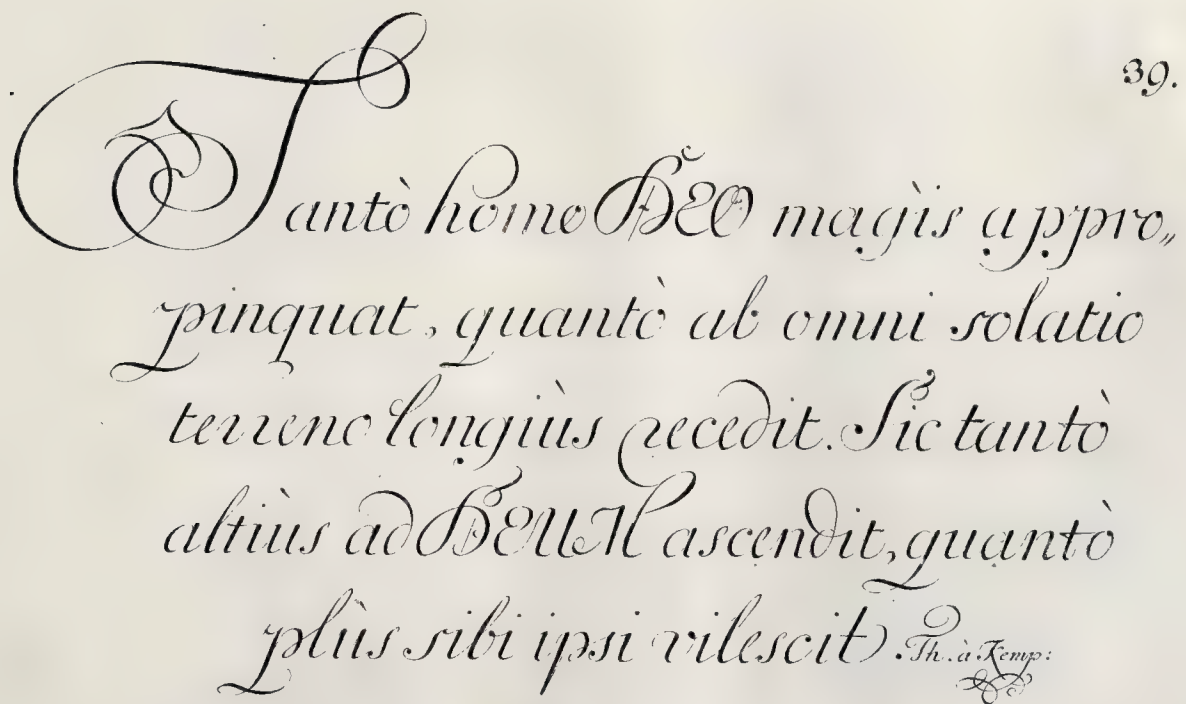 39.
Tantò homo DEO magis appro„
pinquat, quantò ab omni solatio
terreno longiùs recedit. Sic tantò
altiùs ad DEUM ascendit, quantò
plùs sibi ipsi vilescit. Th. à Kemp: